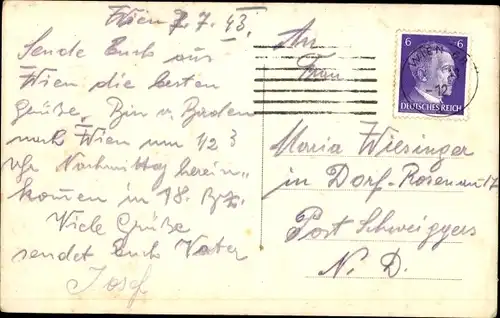 Wien 7.7.43.
Sende Euch aus
Wien die besten
Grüße. Bin v. Baden
nach Wien um 1/2 3
Uhr Nachmittag herein-
kommen in 18. Bez.
Viele Grüße
sendet Euch Vater
Josef
An
Frau
Maria Wiesinger
in Dorf-Rosenau 17
Post Schweiggers
N. D.
6 6
DEUTSCHES REICH
WIEN
-12